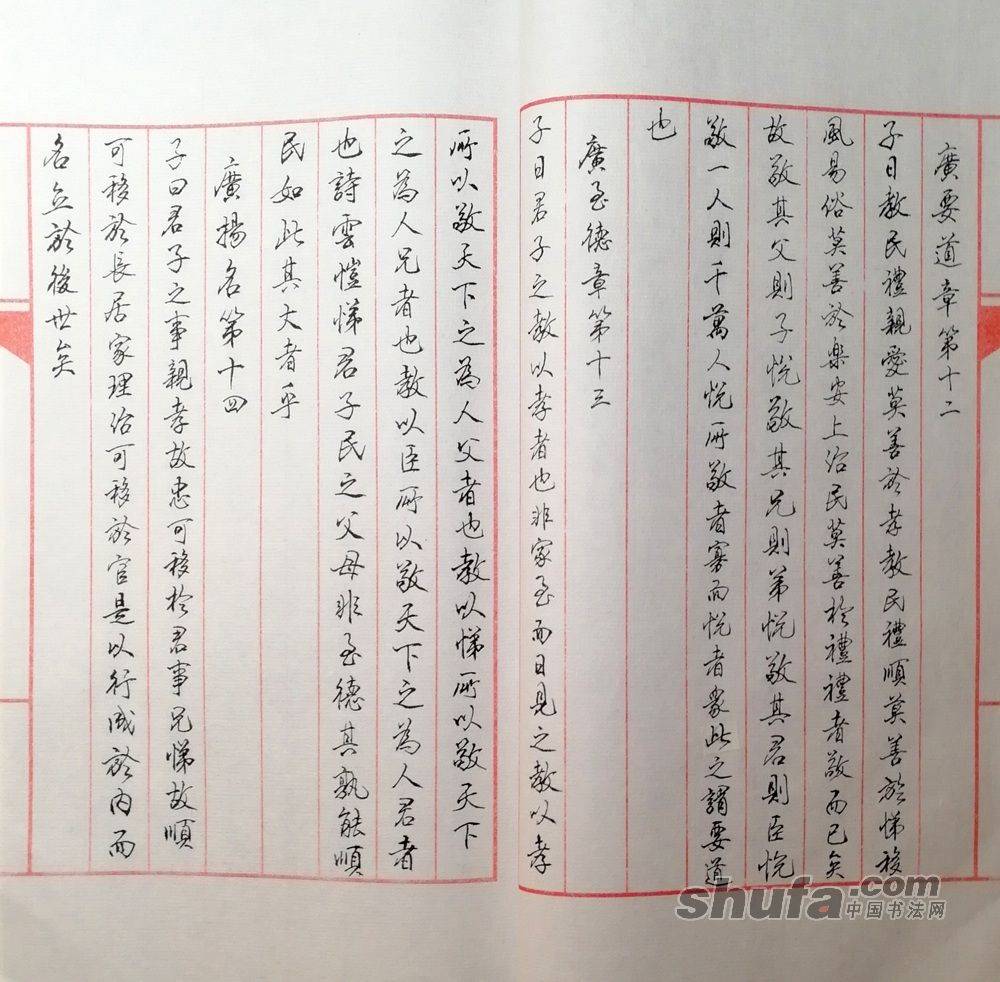 廣要道章第十二
子曰教民禮親愛莫善於孝教民禮順莫善於悌移
風易俗莫善於樂安上治民莫善於禮禮者敬而已矣
故敬其父則子悅敬其兄則弟悅敬其君則臣悅
敬一人則千萬人悅所敬者寡而悅者眾此之謂要道
也
廣至德章第十三
子曰君子之教以孝者也非家至而日見之教以孝
所以敬天下之為人父者也教以悌所以敬天下
之為人兄者也教以臣所以敬天下之為人君者
也詩雲愷悌君子民之父母非至德其孰能順
民如此其大者乎
廣揚名第十四
子曰君子之事親孝故忠可移於君事兄悌故順
可移於長居家理治可移於官是以行成於內而
名立於後世矣
shufa.com
中国书法网